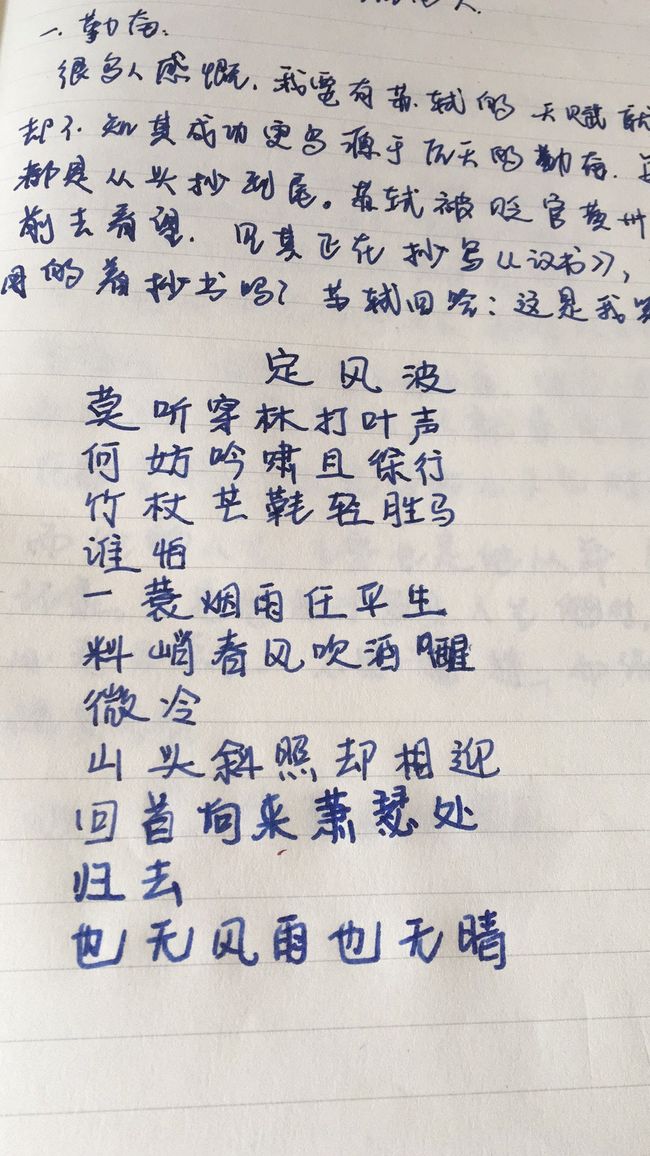 一.勤奋.
很多人感慨.我要有苏轼的天赋就
却不知其成功更多源于后天的勤奋.
都是从头抄到尾。苏轼被贬官黄州
前去看望.见其正在抄写《汉书》,
用的着抄书吗?苏轼回答:这是我
定风波
莫听穿林打叶声
何妨吟啸且徐行
竹杖芒鞋轻胜马
谁怕
一蓑烟雨任平生
料峭春风吹酒醒
微冷
山头斜照却相迎
回首向来萧瑟处
归去
也无风雨也无晴